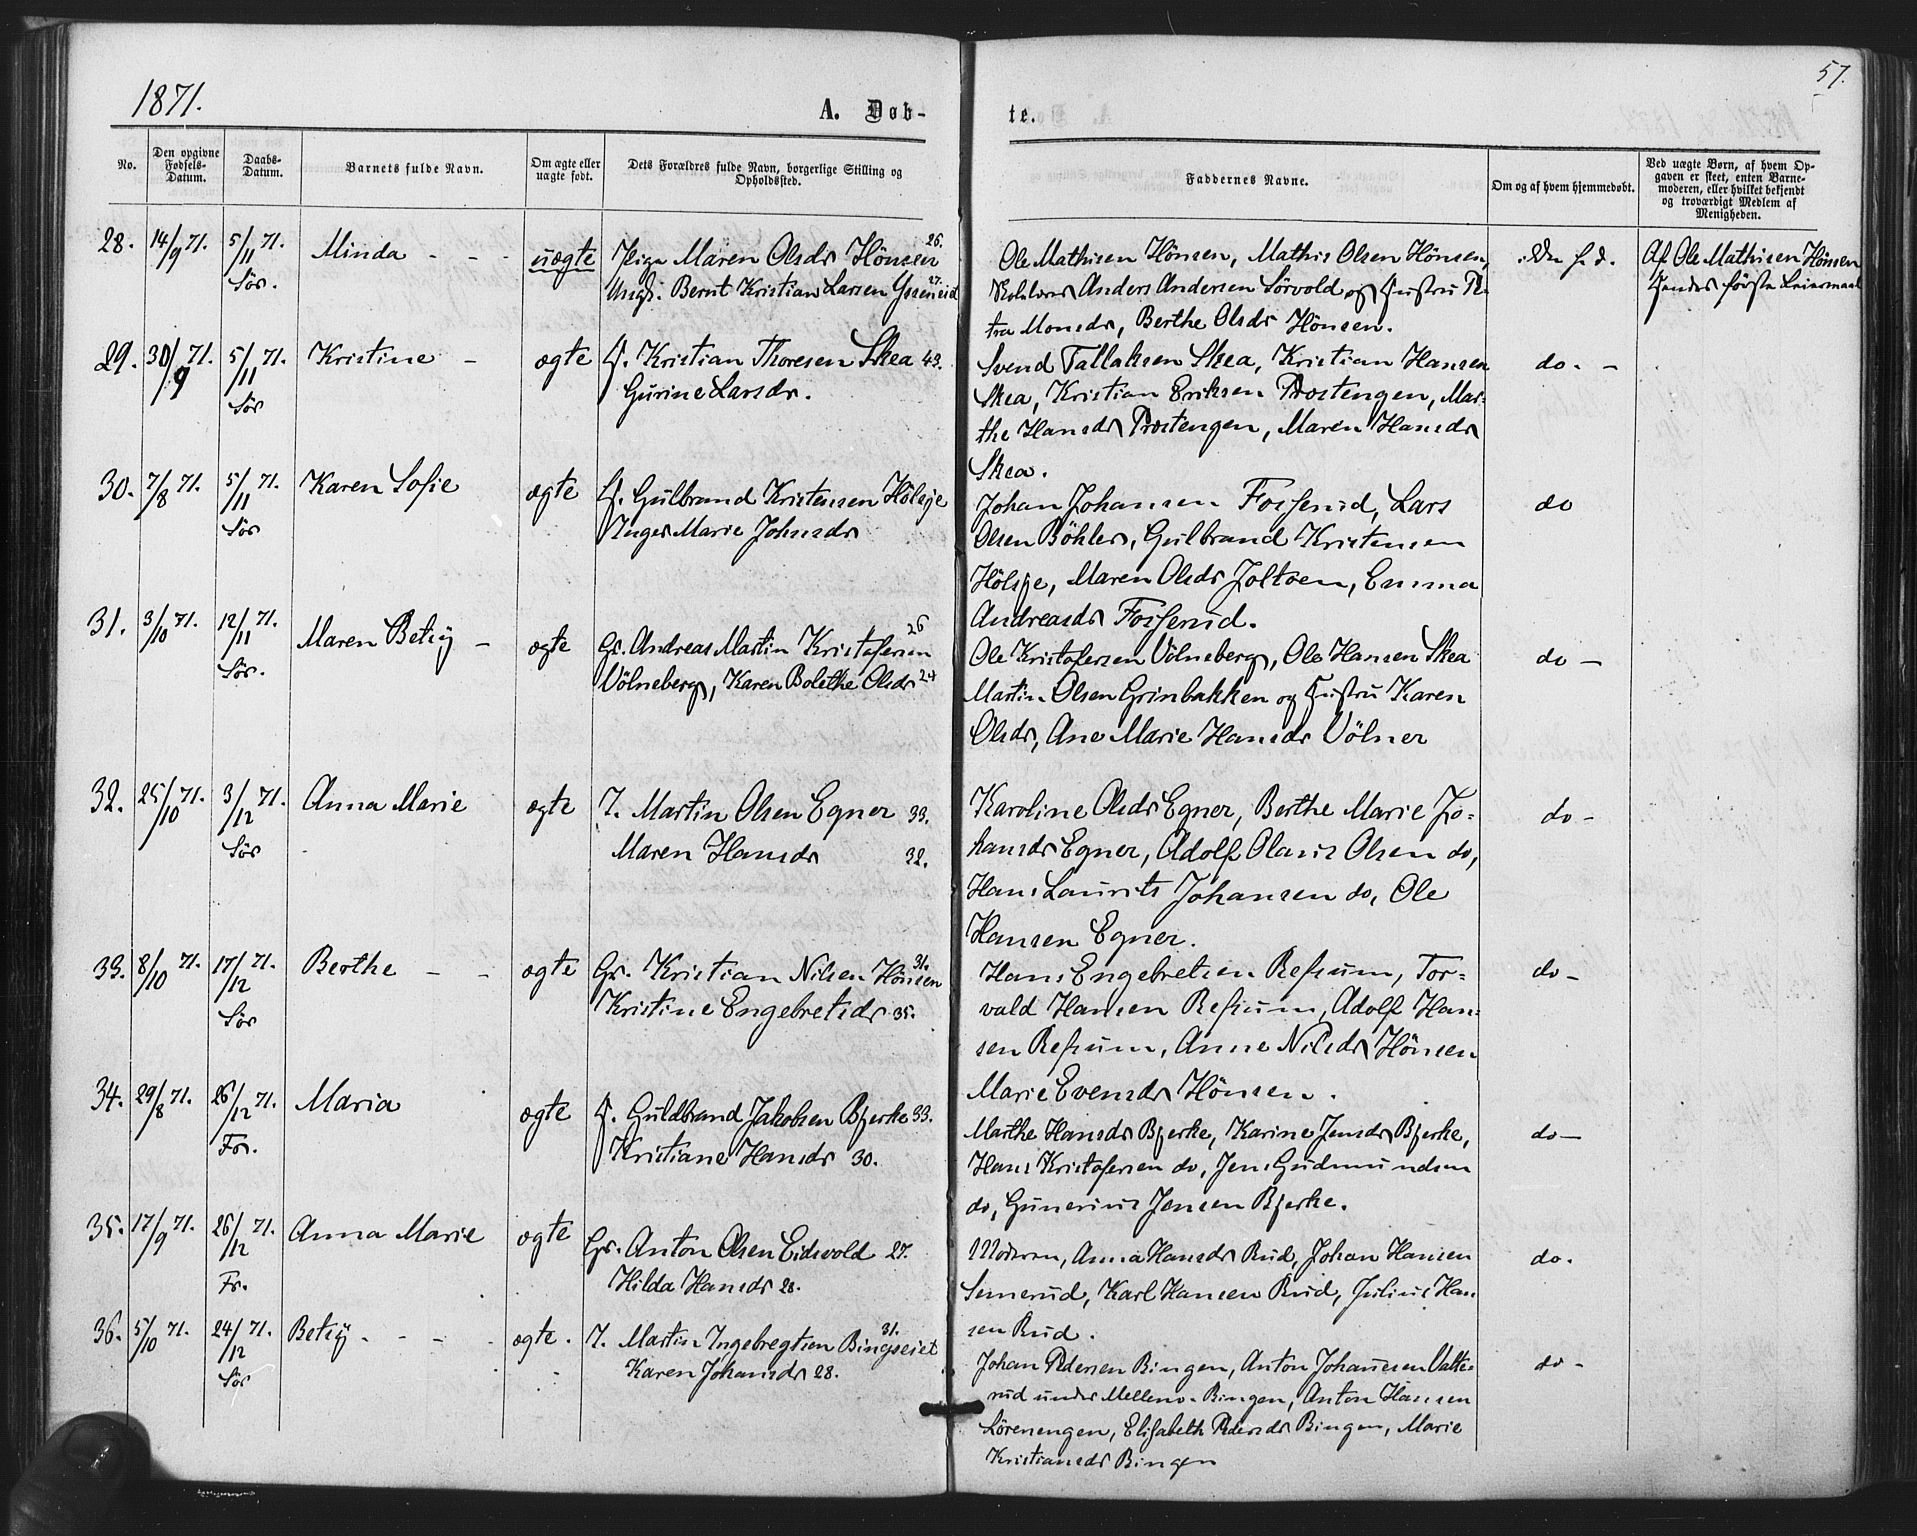 1871.
A. Døb-
No.
Den opgivne Fødsels-Datum.
Daabs-Datum.
Barnets fulde Navn.
Om ægte eller uægte født.
Dets Forældres fulde Navn, borgerlige Stilling og Opholdssted.
28. 14/9 71. 5/11 71. Sør. Minda - - - uægte
Pige Maren Olsdr Hönsen 26.
Ungk. Bernt Kristian Larsen 27.
29. 30/9 71. 5/11 71. Sør Kristine - ægte
Kristian Thoresen Skea 43.
Gurine Larsdr.
30. 7/8 71. 5/11 71. Sør Karen Sofie ægte
Gulbrand Kristensen Hölsje
Inger Marie Johnsdr
31. 3/10 71. 12/11 71. Sør. Maren Betsy - ægte
Gr. Andreas Martin Kristofersen 26
Völneberg, Karen Bolethe Olsdr 24
32. 25/10 71. 3/12 71. Sør Anna Marie ægte
I. Martin Olsen Egner 33.
Maren Hansdr 32.
33. 8/10 71. 17/12 71. Sør Berthe - - ægte
Gr. Kristian Nilsen Hönsen 31.
Kristine Engebretsdr 35.
34. 29/8 71. 26/12 71. Fr. Maria ægte
Guldbrand Jakobsen Bjerke 33.
Kristiane Hansdr 30.
35. 17/9 71. 26/12 71. Fr. Anna Marie ægte
Gr. Anton Olsen Eidsvold 27.
Hilda Hansdr 28.
36. 5/10 71. 24/12 71. Sør Betsy - - - - ægte.
I. Martin Ingebregtsen Bingseiet 31.
Karen Johansdr 28.
57.
te.
Faddernes Navne.
Om og af hvem hjemmedøbt.
Ved uægte Børn, af hvem Opgaven er skeet, enten Barnemoderen, eller hvilket bekjendt og troværdigt Medlem af Menigheden.
Ole Mathisen Hönsen, Mathis Olsen Hönsen,
Anders Andersen Sörvold og Hustru Pe-
tra Monsdr, Berthe Olsdr Hönsen.
Af Ole Mathisen Hönsen
Hendes første Leiermaal
Svend Tallaksen Skea, Kristian Hansen
Skea, Kristian Eriksen Prostengen, Mar-
the Hansdr Prostengen, Maren Hansdr
Skea.
do. -
Johan Johansen Fosserud, Lars
Olsen Böhler, Gulbrand Kristensen
Hölsje, Maren Olsdr Joltoen, Emma
Andreasdr Fosserud.
do
Ole Kristofersen Völneberg, Ole Hansen Skea
Martin Olsen Grinbakken og Hustru Karen
Olsdr, Ane Marie Hansdr Völner
do -
Karoline Olsdr Egner, Berthe Marie Jo-
hansdr Egner, Adolf Olaus Olsen do,
Hans Laurits Johansen do, Ole
Hansen Egner.
do -
Hans Engebretsen Refsum, Tor-
vald Hansen Refsum, Adolf Han-
sen Refsum, Anne Nilsdr Hönsen
Marie Evensdr Hönsen.
do -
Marthe Hansdr Bjerke, Karine Jensdr Bjerke,
Hans Kristofersen do, Jens Gudmundsen
do, Gunerius Jensen Bjerke.
do -
Moderen, Anna Hansdr Rud, Johan Hansen
Semerud, Karl Hansen Rud, Julius Han
sen Rud.
do.
Johan Pedersen Bingen, Anton Johannesen Valte-
rud under Mellem-Bingen, Anton Hansen
Lörenengen, Elisabeth Pedersdr Bingen, Marie
Kristiansdr Bingen
do -